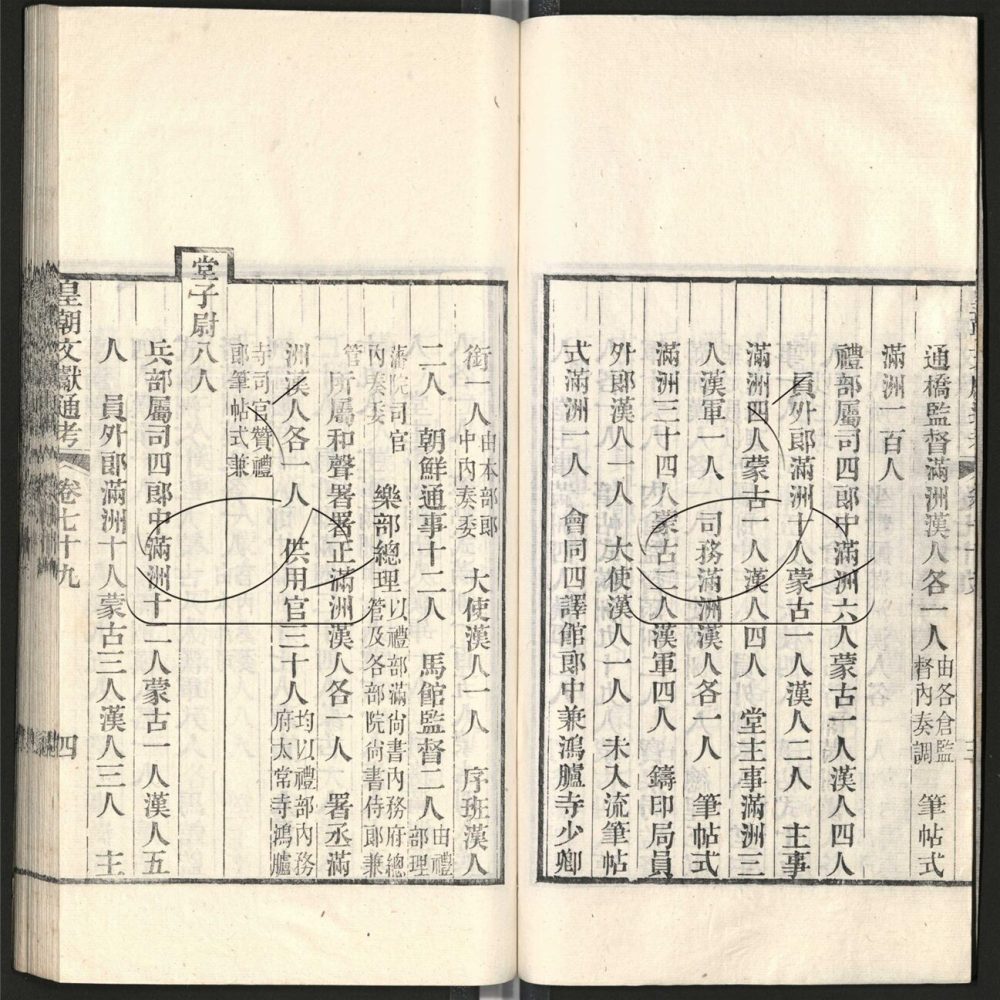 通橋監督滿洲漢人各一人 由各倉監督內奏調 筆帖式
滿洲一百人
禮部屬司四郎中滿洲六人蒙古一人漢人四人
員外郎滿洲十人蒙古一人漢人二人 主事
滿洲四人蒙古一人漢人四人 堂主事滿洲三
人漢軍一人 司務滿洲漢人各一人 筆帖式
滿洲三十四人蒙古二人漢軍四人 鑄印局員
外郎漢人一人 大使漢人一人 未入流筆帖
式滿洲一人 會同四譯館郎中兼鴻臚寺少卿
銜一人 由本部郎中內奏委 大使漢人一人 序班漢人
二人 朝鮮通事十二人 馬館監督二人 由禮部理
藩院司官內奏委 樂部總理 以禮部滿尚書內務府總管及各部院尚書侍郎兼
管 所屬和聲署署正滿洲漢人各一人 署丞滿
洲漢人各一人 供用官三十人 均以禮部內務府太常寺鴻臚
寺司官贊禮郎筆帖式兼
堂子尉八人
兵部屬司四郎中滿洲十一人蒙古一人漢人五
人 員外郎滿洲十人蒙古三人漢人三人 主
皇朝文獻通考 卷七十九 四